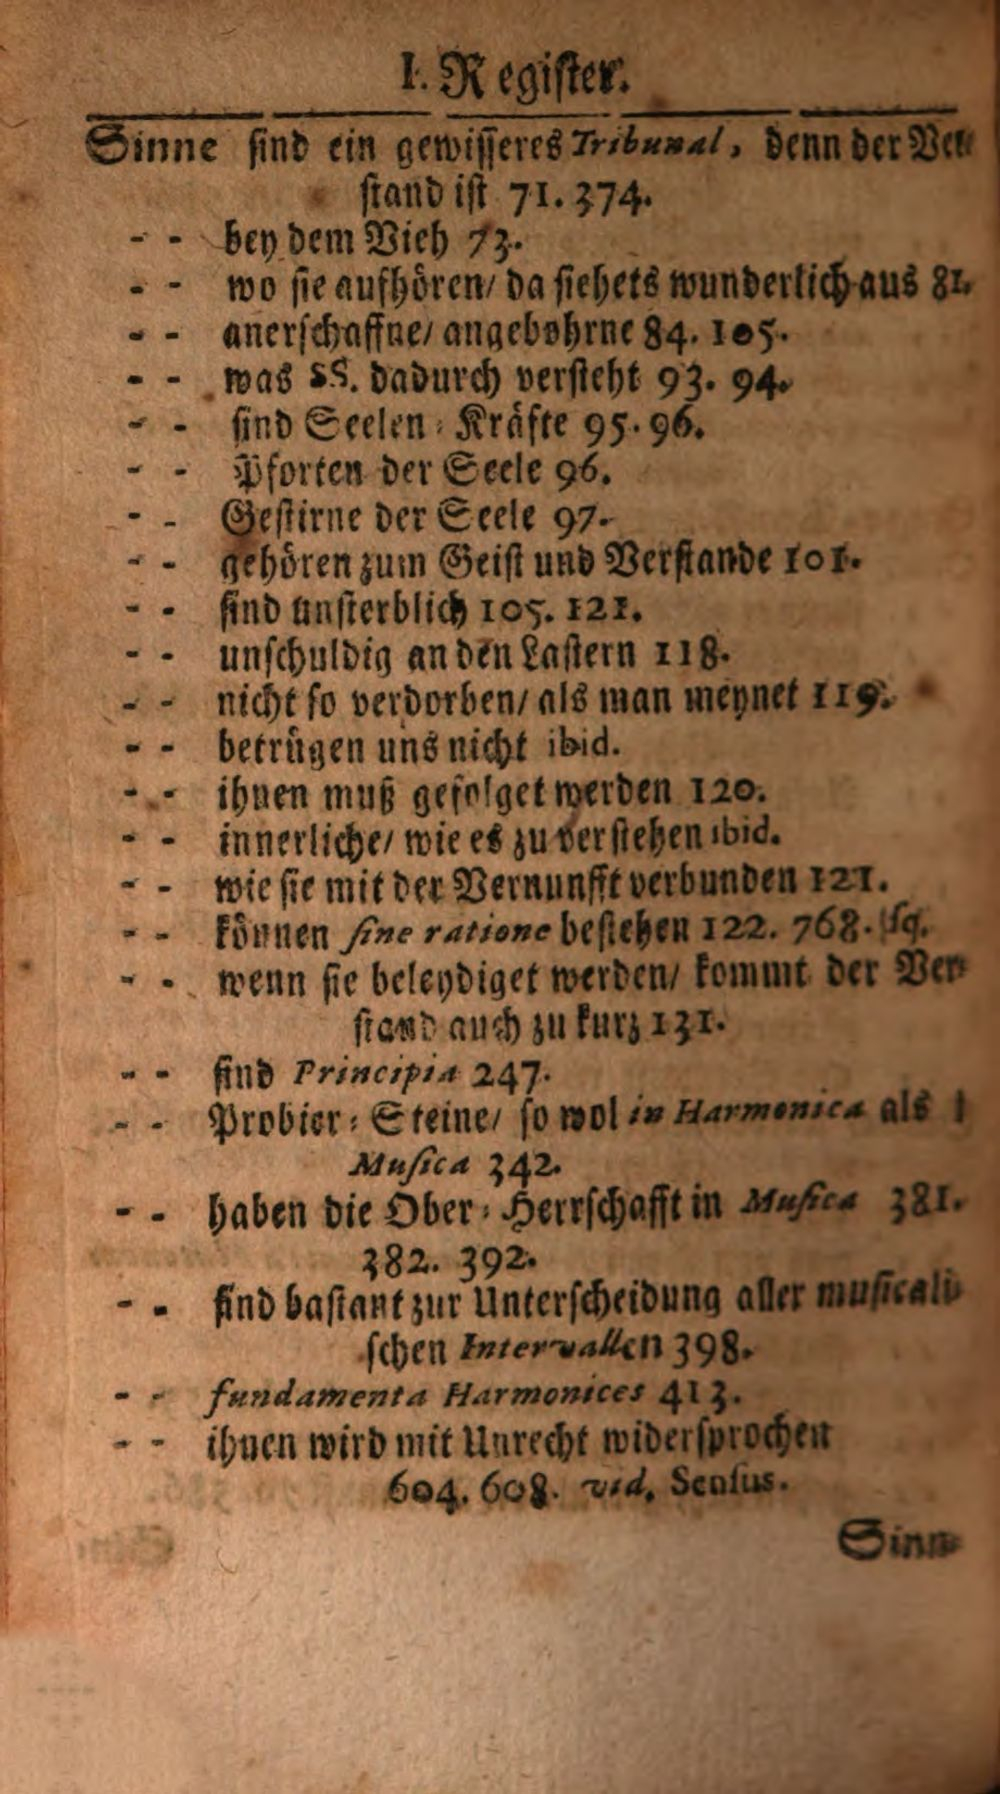 I. Register.
Sinne sind ein gewisseres Tribunal, denn der Ver-
stand ist 71. 374.
- - bey dem Vieh 73.
- - wo sie aufhören/ da siehets wunderlich aus 81.
- - anerschaffne/ angebohrne 84. 105.
- - was SS. dadurch versteht 93. 94.
- - sind Seelen-Kräfte 95. 96.
- - Pforten der Seele 96.
- - Gestirne der Seele 97.
- - gehören zum Geist und Verstande 101.
- - sind unsterblich 105. 121.
- - unschuldig an den Lastern 118.
- - nicht so verdorben/ als man meynet 119.
- - betrügen uns nicht ibid.
- - ihnen muß gefolget werden 120.
- - innerliche/ wie es zu verstehen ibid.
- - wie sie mit der Vernunfft verbunden 121.
- - können sine ratione bestehen 122. 768. sq.
- - wenn sie beleydiget werden/ kommt der Ver-
stand auch zu kurz 131.
- - sind Principia 247.
- - Probier-Steine/ so wol in Harmonica als
Musica 342.
- - haben die Ober-Herrschafft in Musica 381.
382. 392.
- - sind bastant zur Unterscheidung aller musicali-
schen Intervallen 398.
- - fundamenta Harmonices 413.
- - ihnen wird mit Unrecht widersprochen
604. 608. vid. Sensus.
Sinn-